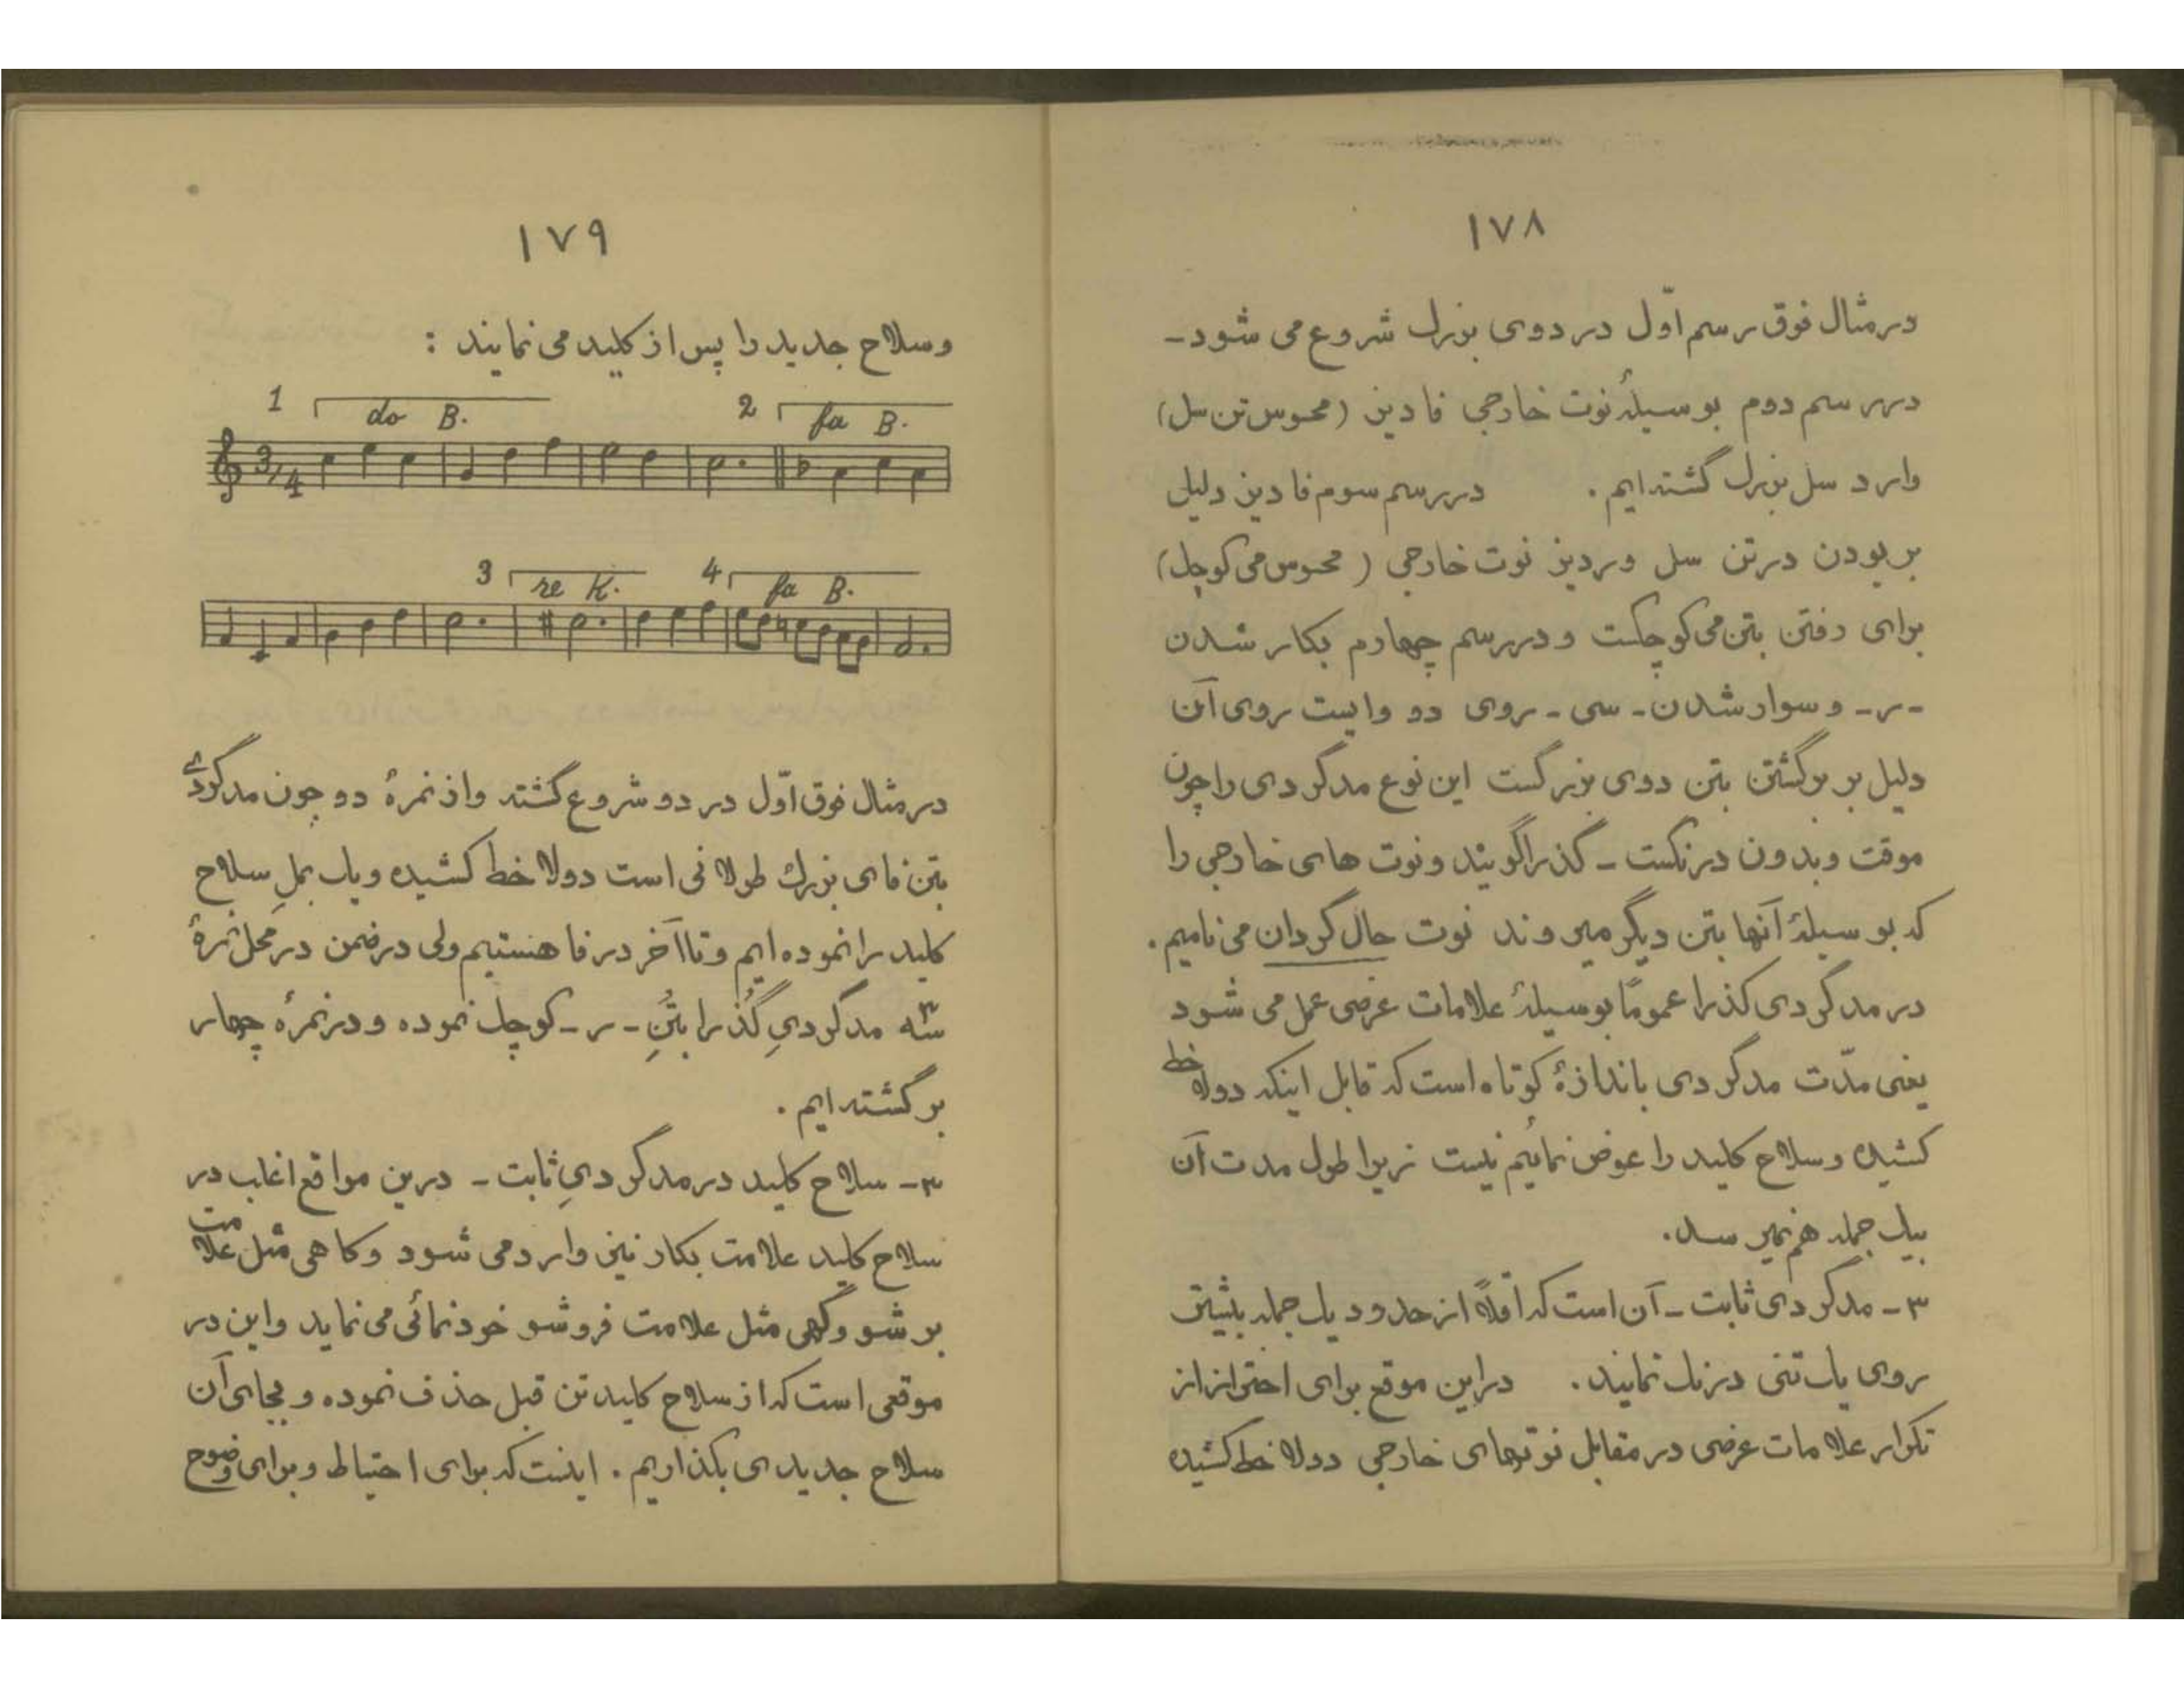 ١٧٨
در مثال فوق رسم اوّل در دوی بزرک شروع می شود-
در رسم دوم بوسیلۀ نوت خارجی فا دیز (محسوس تن سل)
وارد سل بزرک گشته‌ایم . در رسم سوم فا دیز دلیل
بر بودن در تن سل و ر دیز نوت خارجی ( محسوس می کوچک)
برای رفتن بتن می کوچکست و در رسم چهارم بکار شدن
- ر - و سوار شدن - سی - روی دو وایست روی آن
دلیل بر برگشتن بتن دوی بزرگست این نوع مدگردی را چون
موقت و بدون درنکست - گذرا گویند و نوت های خارجی را
که بوسیلۀ آنها بتن دیگر میروند نوت حال گردان می نامیم .
در مدگردی گذرا عموماً بوسیلۀ علامات عرضی عمل می شود
یعنی مدّت مدگردی باندازۀ کوتاه است که قابل اینکه دولا خط
کشیده و سلاح کلید را عوض نمائیم نیست زیرا طول مدت آن
بیک جمله هم نمیرسد.
۳ - مدگردی ثابت - آن است که اقلاً از حدود یک جمله بیشتر
روی یک تنی درنک نمایند . در این موقع برای احتراز از
تکرار علامات عرضی در مقابل نوتهای خارجی دولا خط کشیده
١٧٩
و سلاح جدید را پس از کلید می نمایند :
1 do B. 2 fa B.
3/4
3 re K. 4 fa B.
در مثال فوق اوّل در دو شروع گشته و از نمرۀ دو چون مدگردی
بتن فای بزرک طولانی است دولا خط کشیده و یک بملِ سلاح
کلید را نموده ایم و تا آخر در فا هستیم ولی در ضمن در محل نمرۀ
سه ۳ مدگردیِ گُذرا بتُنِ - ر - کوچک نموده و در نمرۀ چهار
بر گشته ایم .
۳- سلاح کلید در مدگردیِ ثابت - درین مواقع اغلب در
سلاح کلید علامت بکار نیز وارد می شود و کاهی مثل علامت
بر شو و گهی مثل علامت فروشو خودنمائی می نماید و این در
موقعی است که از سلاح کلید تن قبل حذف نموده و بجای آن
سلاح جدیدی بکذاریم . اینست که برای احتیاط و برای وضوح